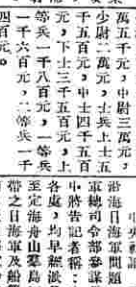 萬五千元，中尉三萬元，
少尉二萬元，士兵上士五
千五百元，中士四千五百
元，下士三千五百元，上
等兵一千八百元，一等兵
一千六百元，二等兵一千
四百元。
沿海日海軍問題
軍總司令部參謀
中將告記者稱：
各處，均早經派
至定海舟山羣島
帶之日海軍及船